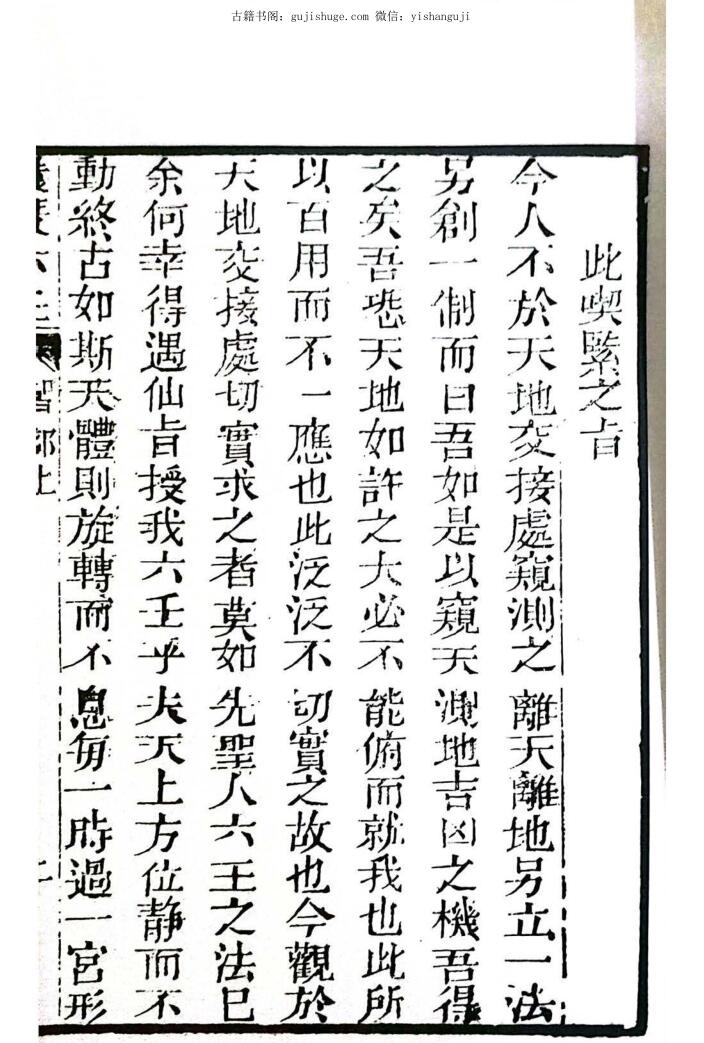 古籍书阁：gujishuge.com 微信：yishanguji
此喫緊之旨
今人不於天地交接處窺測之離天離地另立一法
另創一制而曰吾如是以窺天測地吉凶之機吾得
之矣吾恐天地如許之大必不能俯而就我也此所
以百用而不一應也此泛泛不切實之故也今觀於
天地交接處切實求之者莫如先聖人六壬之法已
余何幸得遇仙旨授我六壬乎夫天上方位靜而不
動終古如斯天體則旋轉而不息每一時過一宮形
六壬 智部上